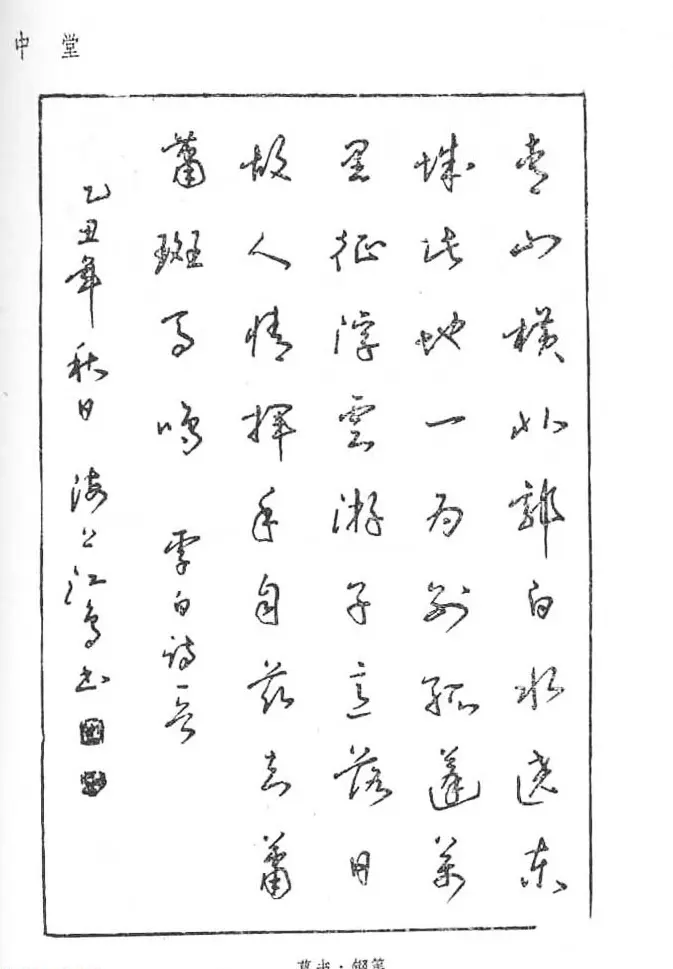 中堂
青山横北郭白水遶东
城此地一为别孤蓬万
里征浮雲游子意落日
故人情揮手自兹去蕭
蕭斑马鸣 李白诗一首
乙丑年秋日 海上江鸟书
草书·钢笔